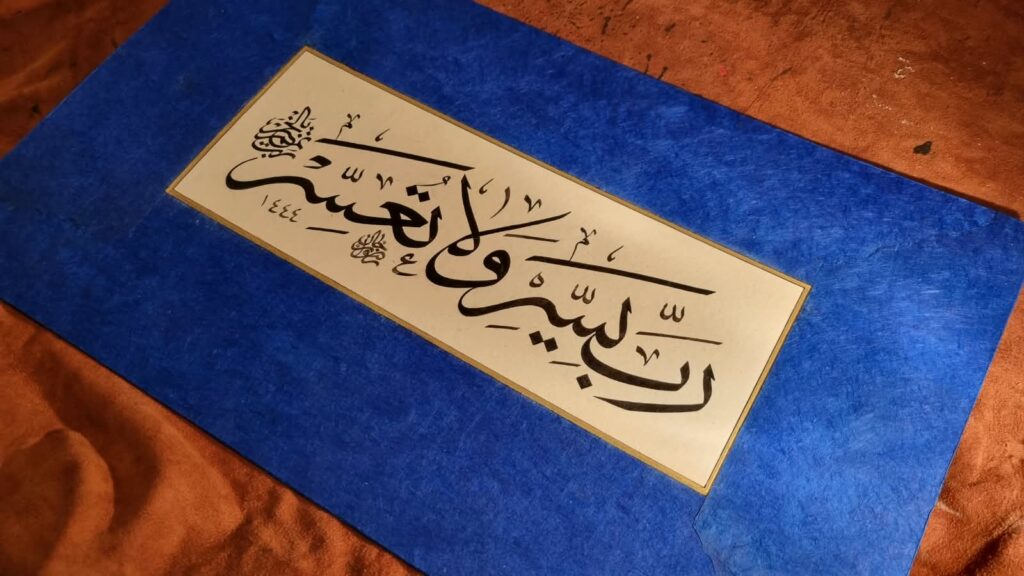 رَبِّ يَسِّرْ وَلَا تُعَسِّرْ
١٤٤٤